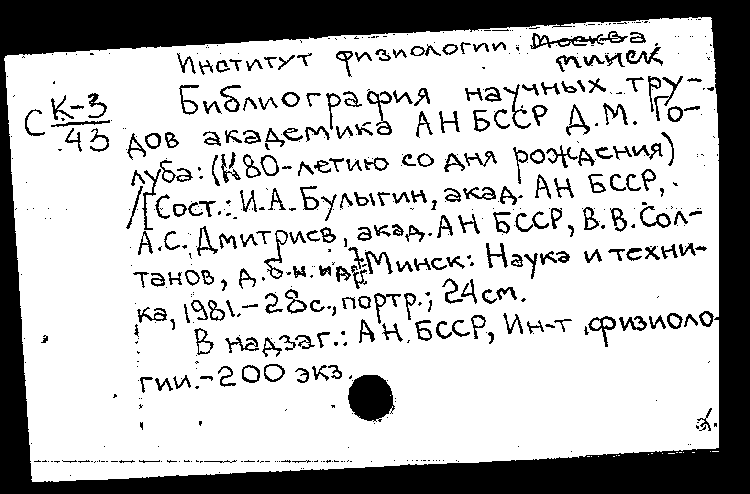 Институт физиологии. Москва
Минск
С К-3
43
Библиография научных тру-
дов академика АН БССР Д.М. Го-
луба: (К 80-летию со дня рождения)
/[Сост.: И.А. Булыгин, акад. АН БССР,
А.С. Дмитриев, акад. АН БССР, В.В. Сол-
танов, д.б.н. и др.] Минск: Наука и техни-
ка, 1981.-28с., портр.; 24см.
В надзаг.: АН БССР, Ин-т физиоло-
гии.-200 экз.